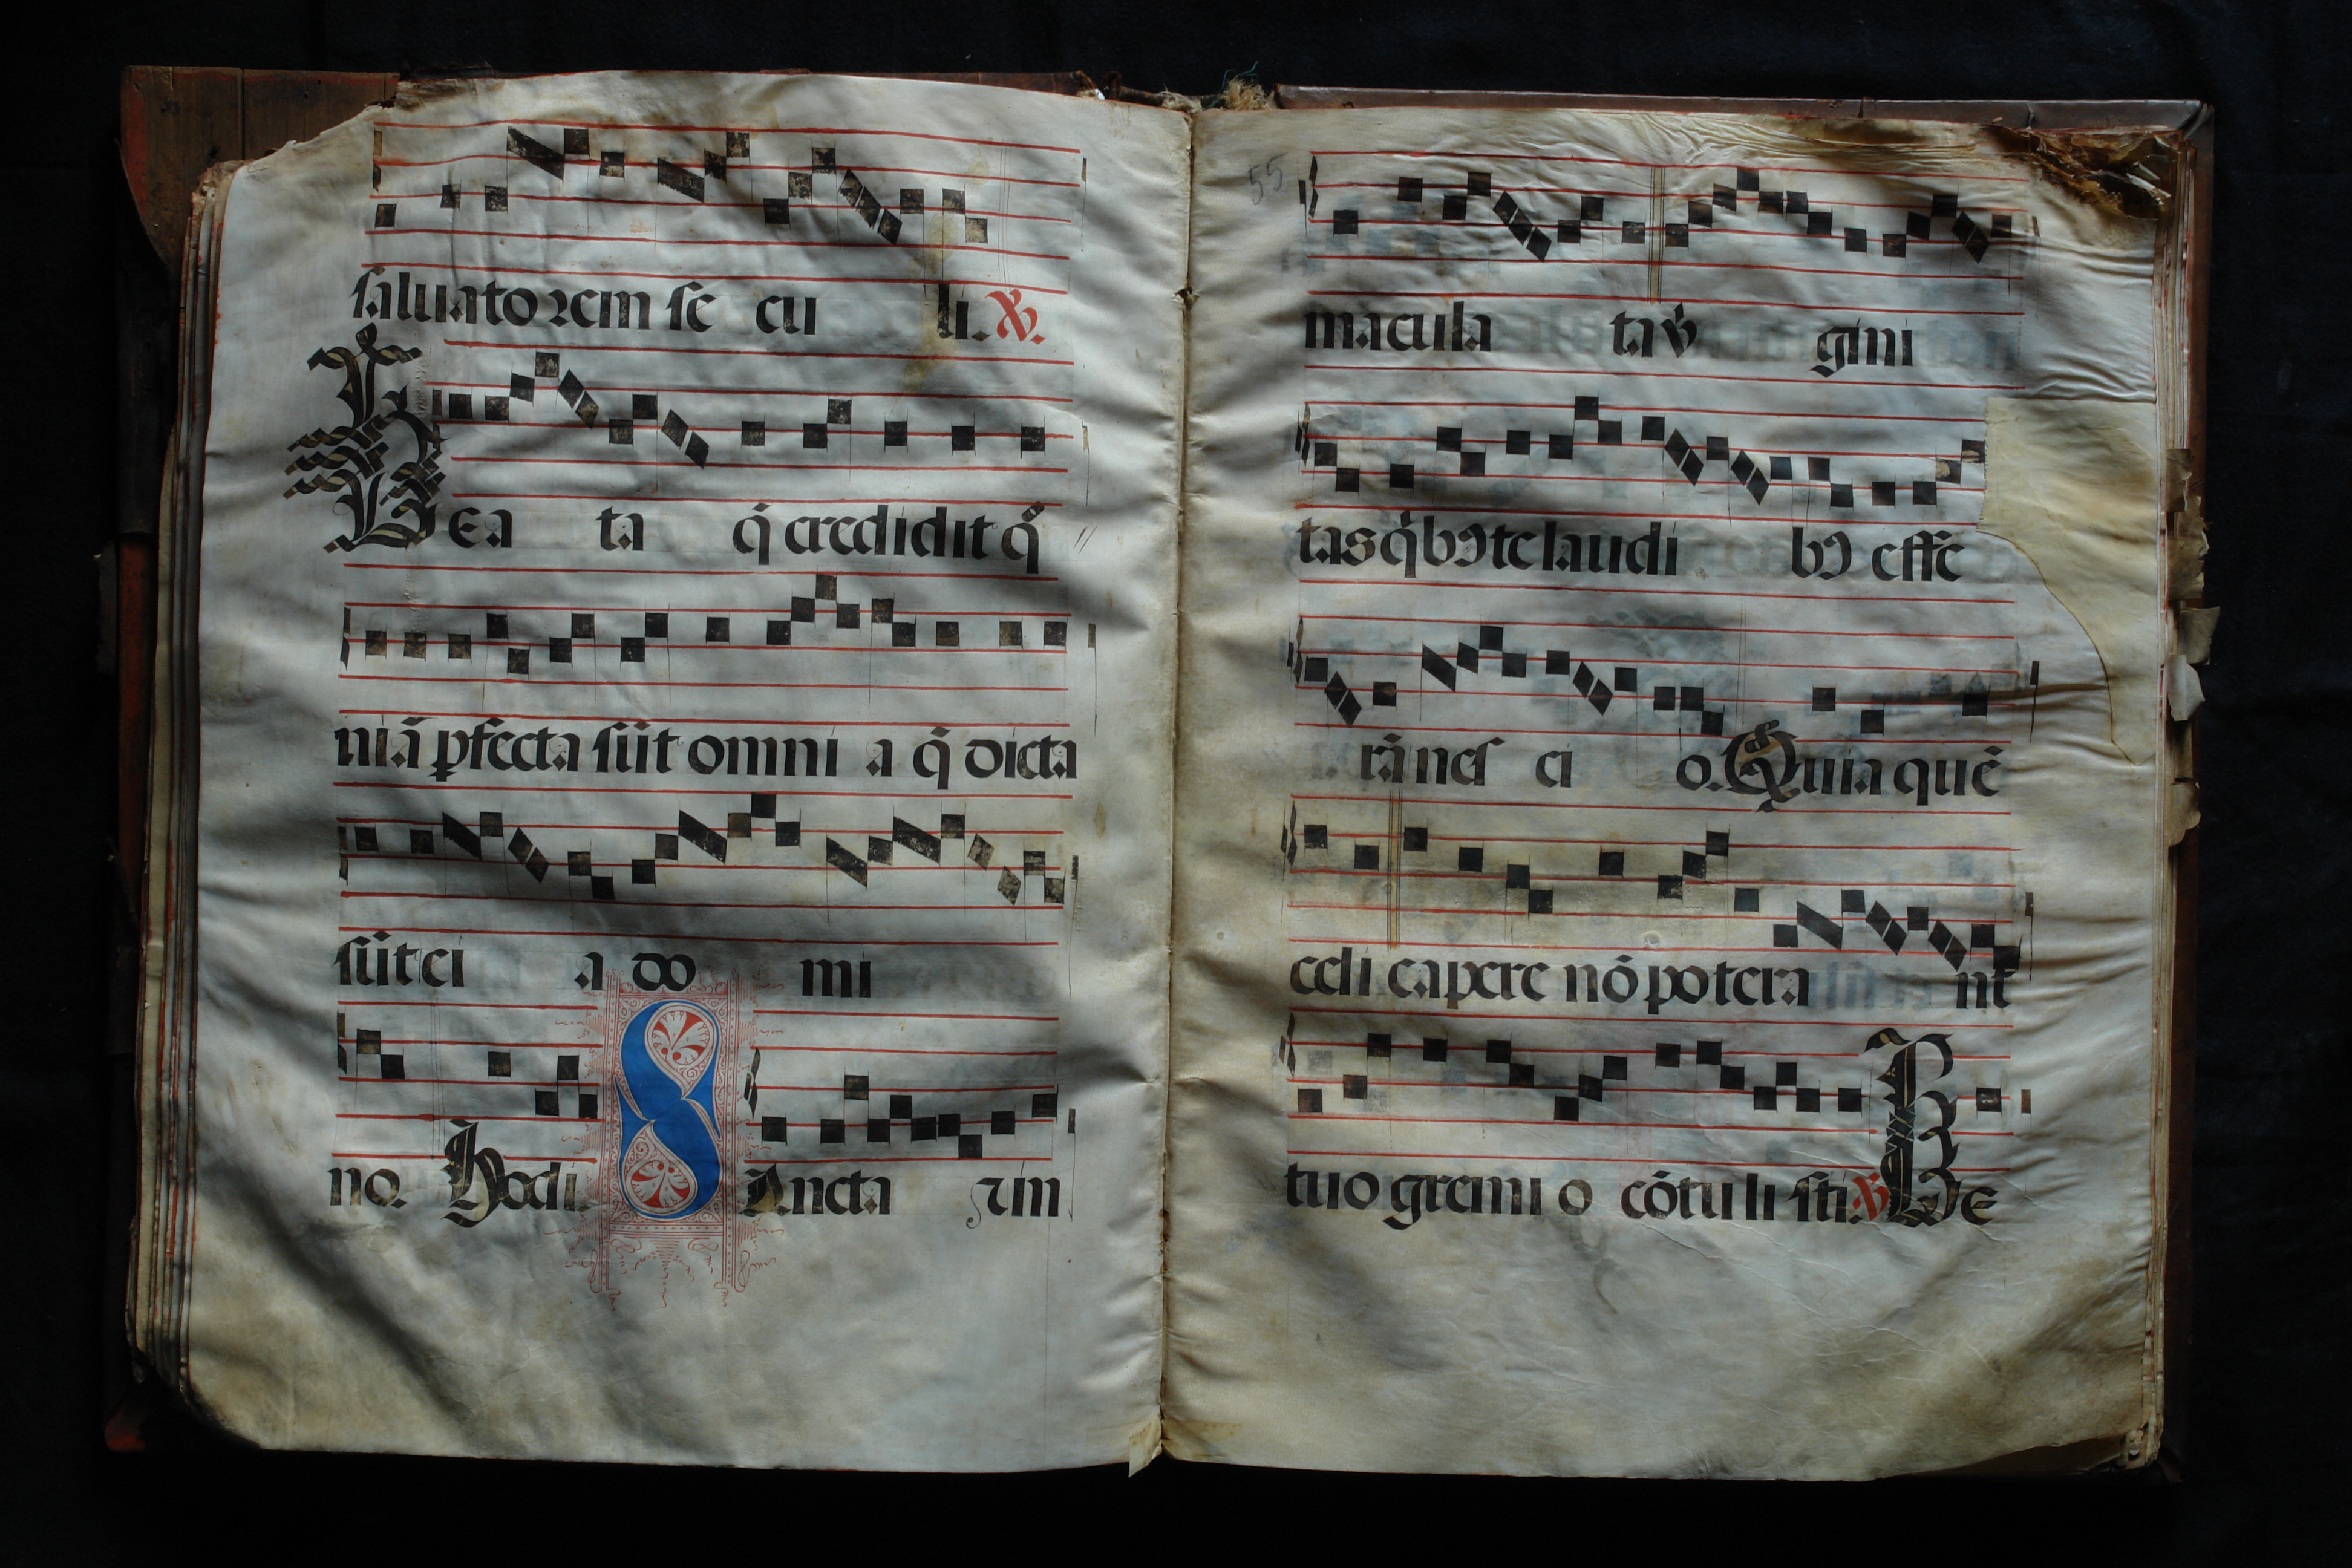 saluatorem se cu li. ℣.
Bea ta q̄ credidit qm̄
niā ꝑfecta sūt omni a q̄ dicta
sūt ei a do mi
no. Hodi. Sancta z in
55
macula ta v̾gini
tas q̾bꝰ te laudi bꝰ effe
rā nesci o. Quia quē
celi capere nō potera nt
tuo gremi o cōtu li sti. ℣. Be